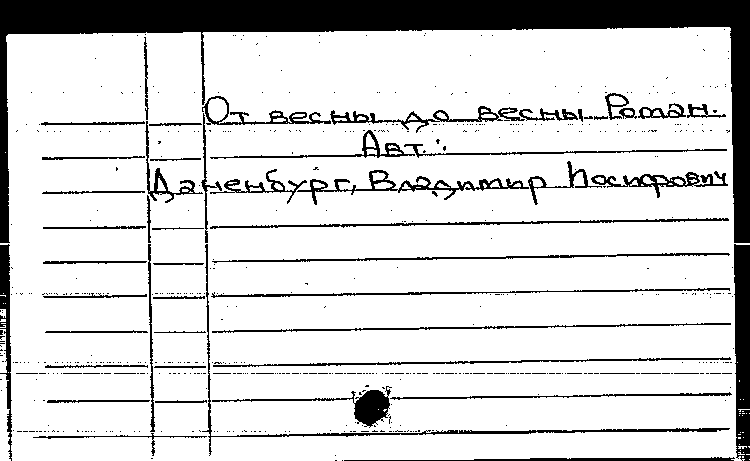 От весны до весны Роман.
Авт.:
Даненбург, Владимир Иосифович